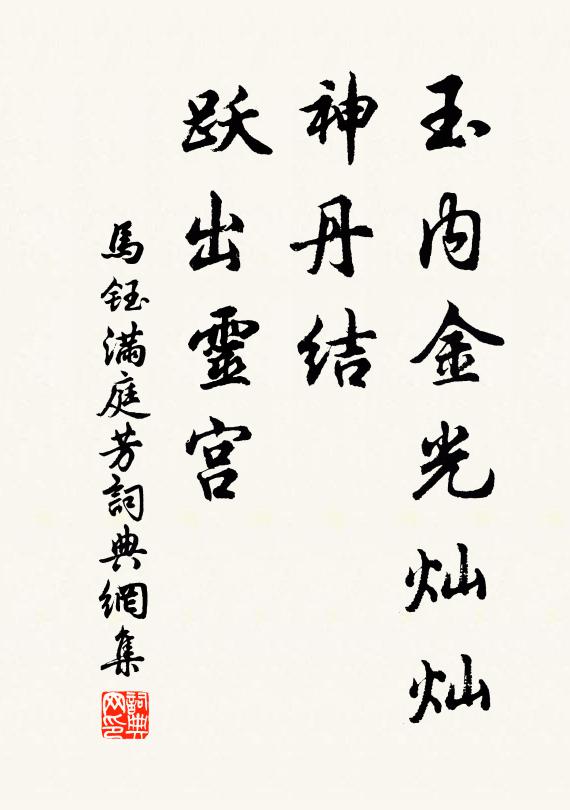 玉内金光灿灿
神丹结
跃出靈宫
馬鈺滿庭芳詞典網集
詞典网印